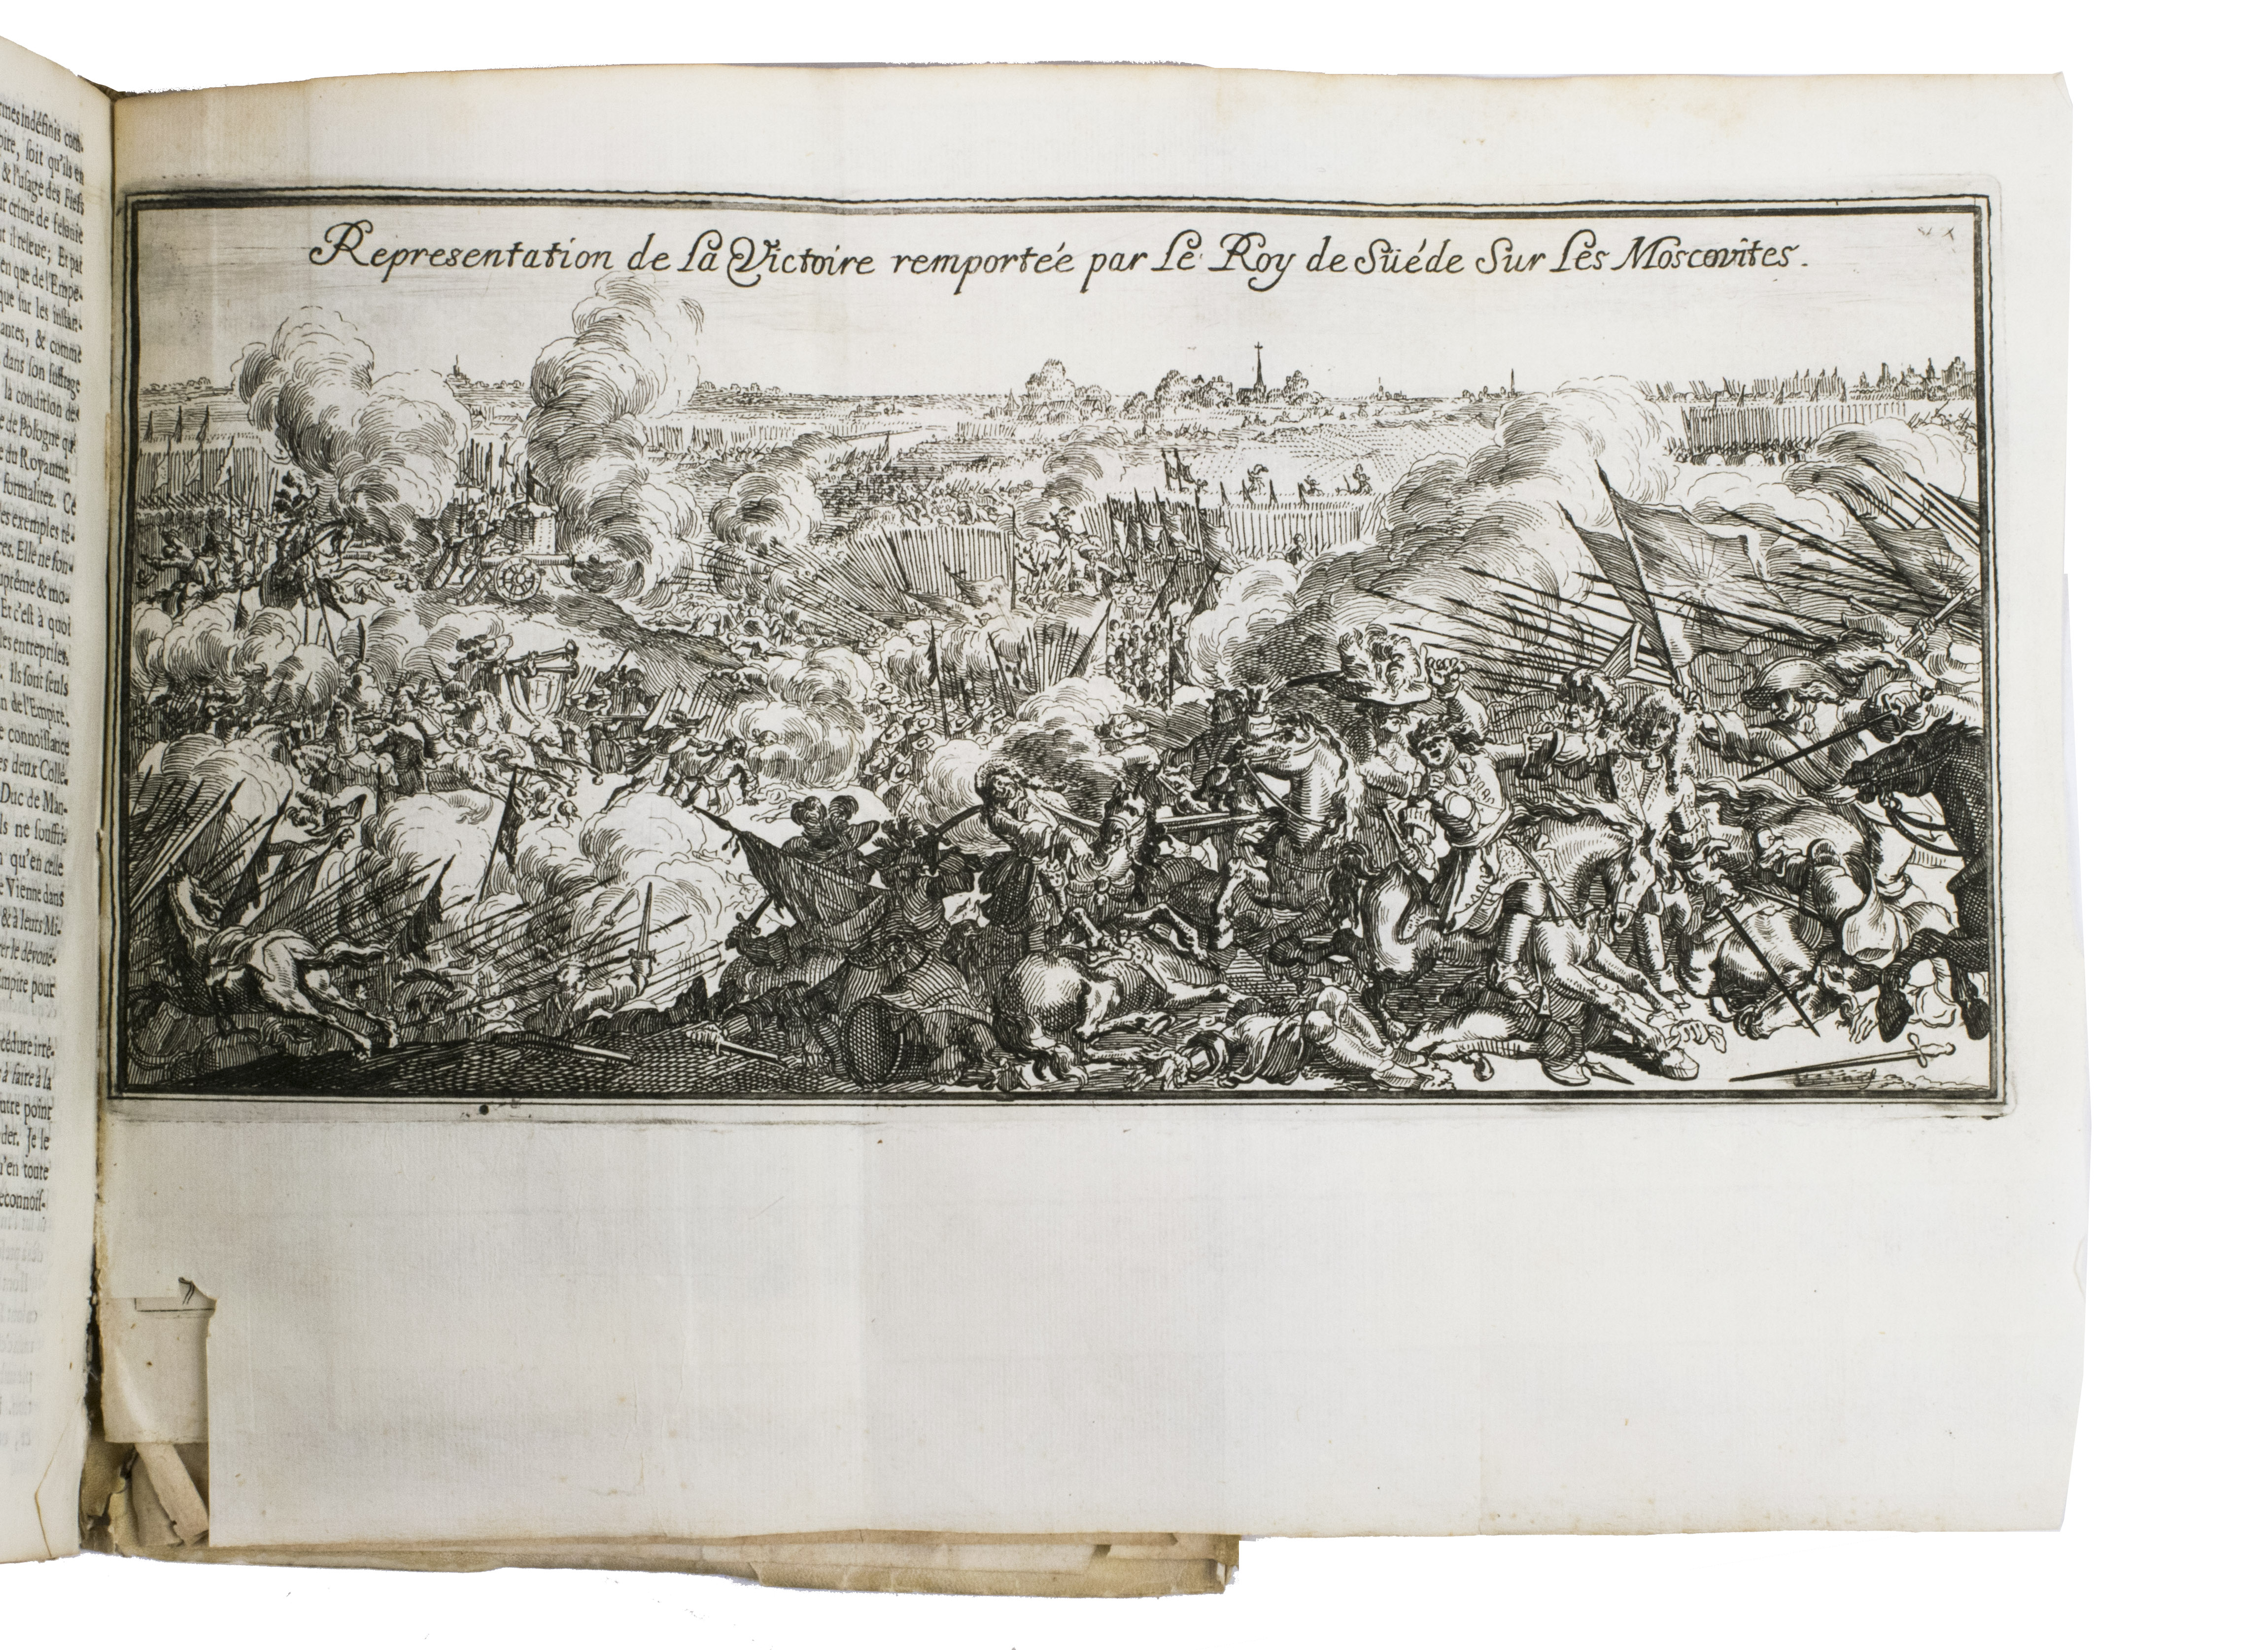 rmes indéfinis com-
pire, ſoit qu'ils en
& l'uſage des Fiefs
ur crime de felonie
it il releve; Et par
en que de l'Empe-
que ſur les inſtan-
antes, & comme
dans ſon ſuffrage
la condition des
e de Pologne qui
e du Royaume.
formalitez. Ce
es exemples ré-
res. Elle ne ſon-
uprême & mo-
Et c'eſt à quoi
les entrepriſes.
Ils ſont ſeuls
n de l'Empire.
e connoiſſance
es deux Collé-
Duc de Man-
ls ne ſouffri-
qu'en celle
e Vienne dans
& à leurs Mi-
er le dévouë-
mpire pour
cédure irré-
à faire à la
utre point
der. Je le
u'en toute
econnoiſ-
Representation de La Victoire remportée par Le Roy de Süéde Sur Les Moscovites.